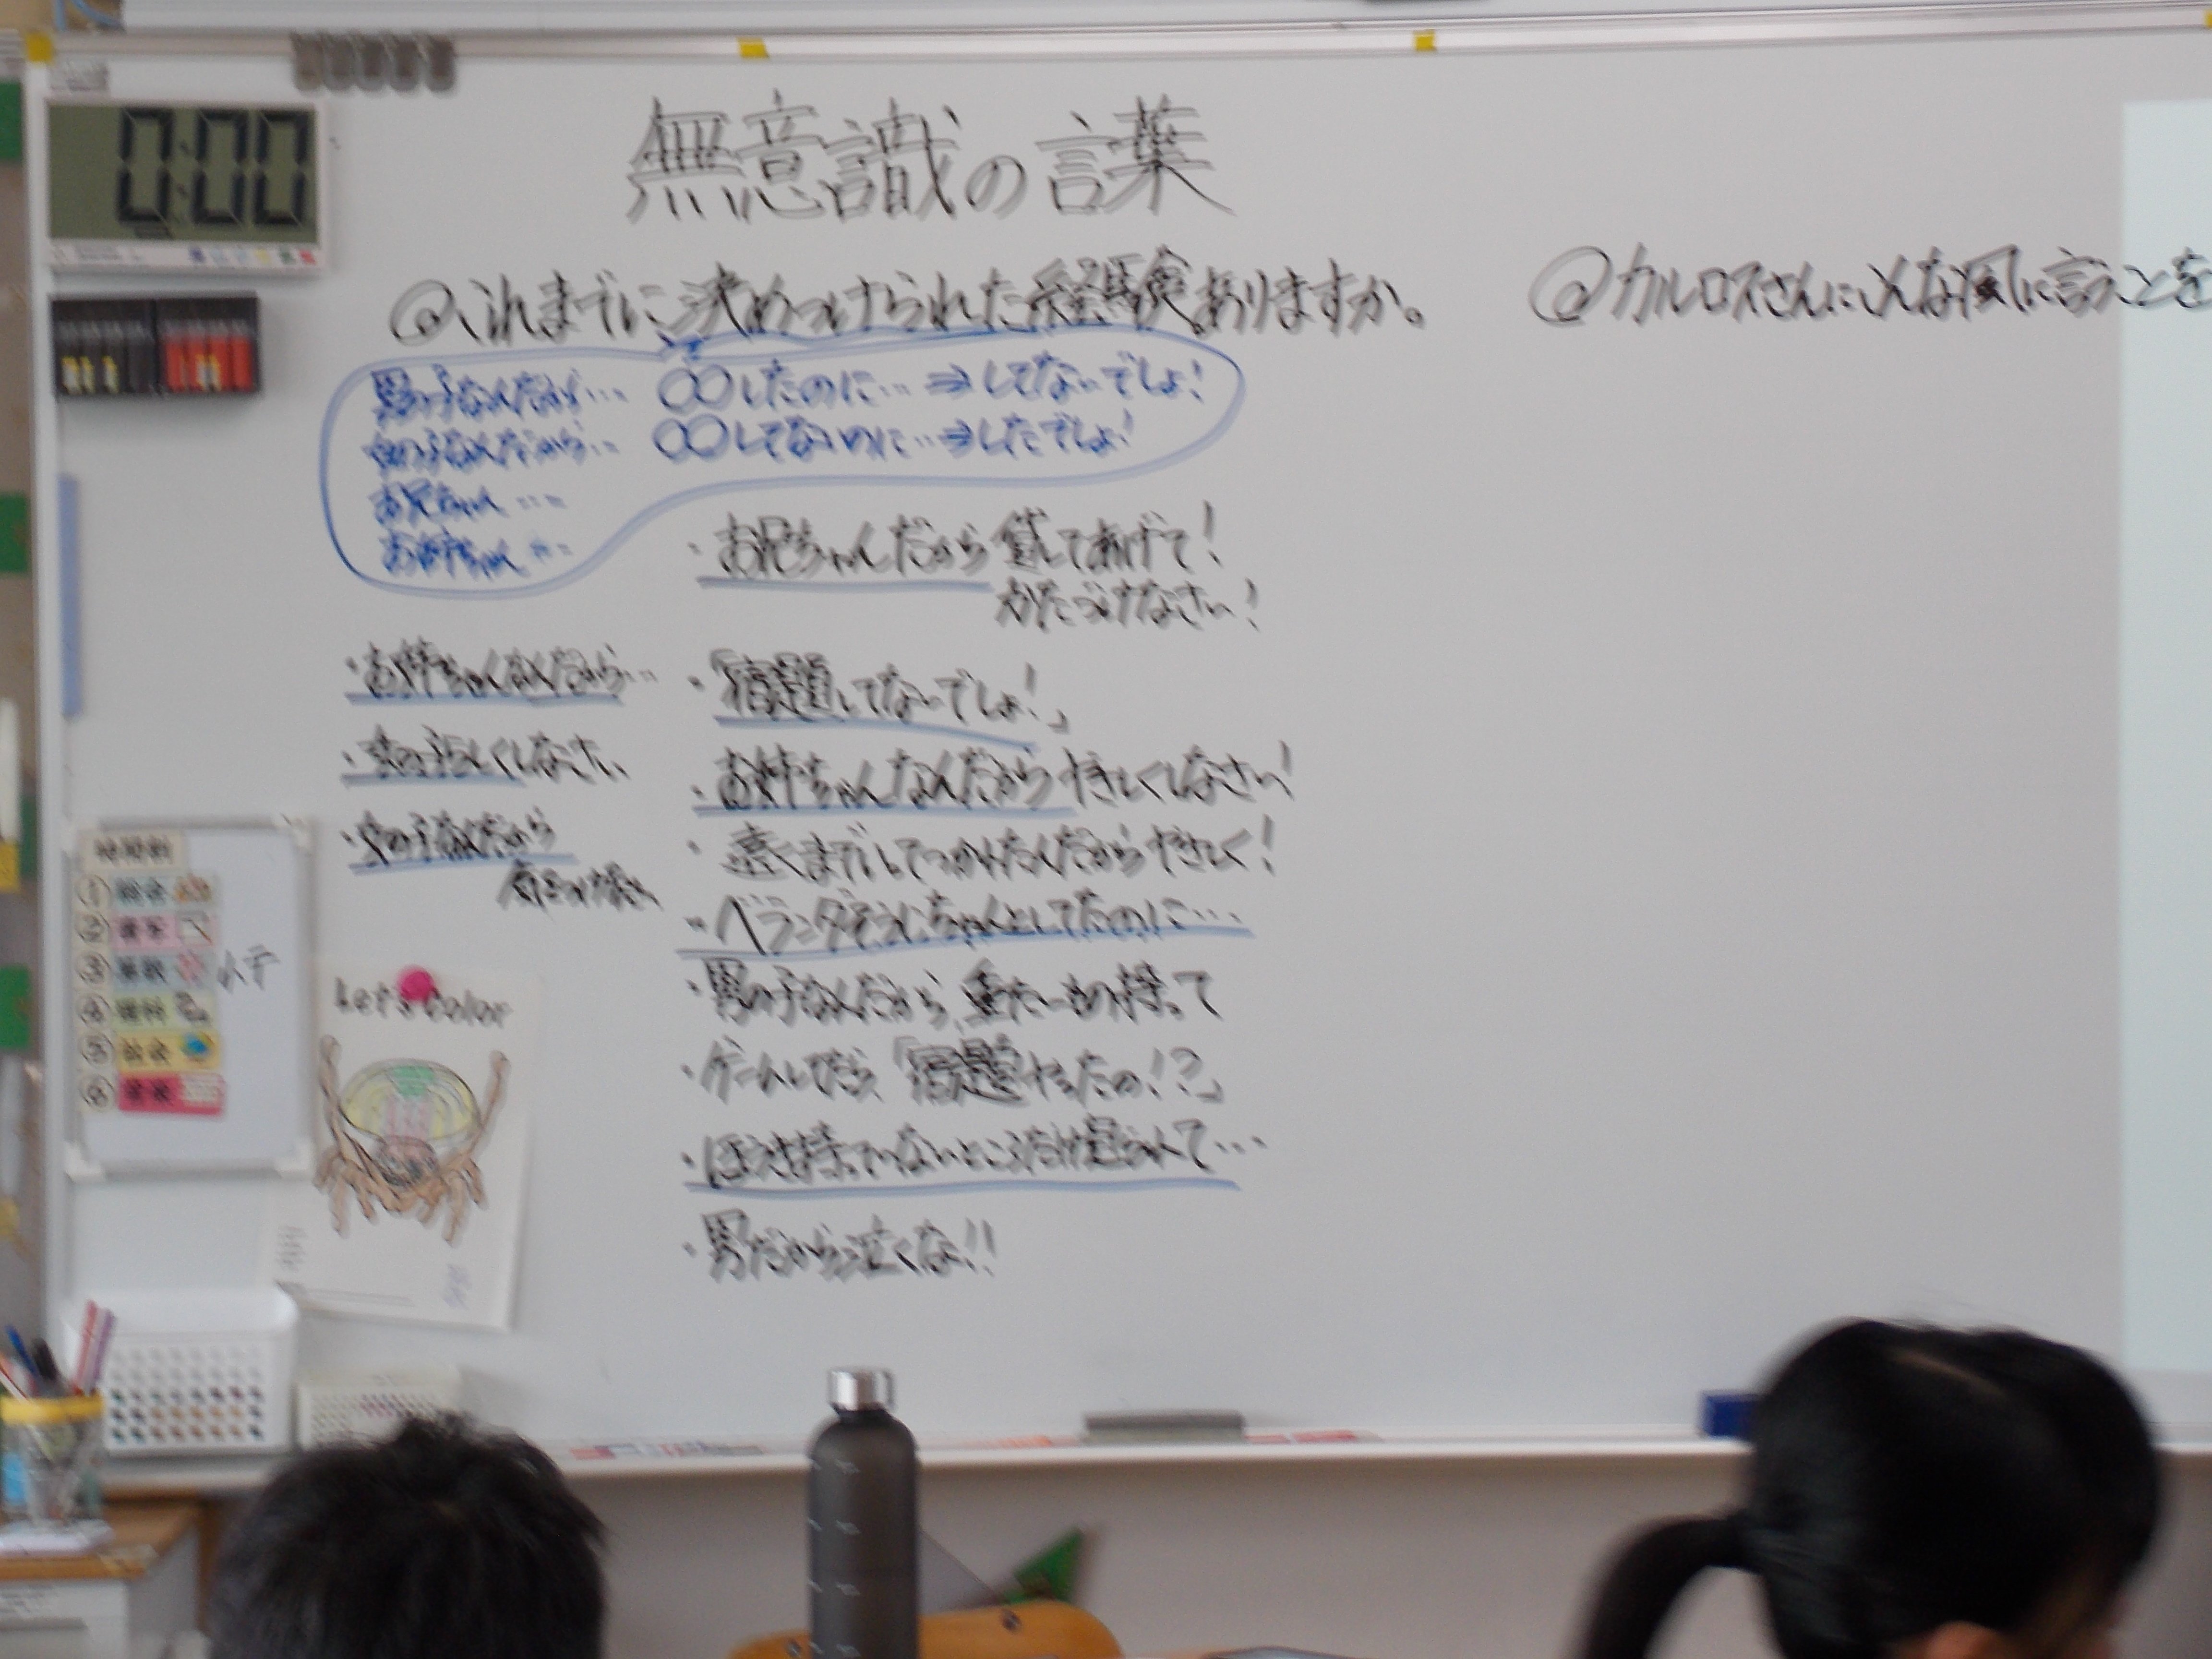 0:00
無意識の言葉
@これまでに決めつけられた経験ありますか。
@カルロスさんにどんな風に言うことを
男の子なんだから… ○○したのに…⇒してないでしょ!
女の子なんだから… ○○してないのに…⇒したでしょ!
お兄ちゃん…
お姉ちゃん…
・お兄ちゃんだから 貸してあげて!
かたづけなさい!
・お姉ちゃんなんだから…
・女の子らしくしなさい
・女の子なんだから
・「宿題してないでしょ!」
・お姉ちゃんなんだからやさしくしなさい!
・ だからやさしく!
・ベランダそうじちゃんとしてたのに…
・男の子なんだから、重たいもの持って
・ゲームしてたら、「宿題やったの!?」
・ほうき持っていないところだけ見られて…
・男だから泣くな!!
時間割
①総合
②書写
③算数 小テ
④理科
⑤社会
⑥音楽
Let's Color